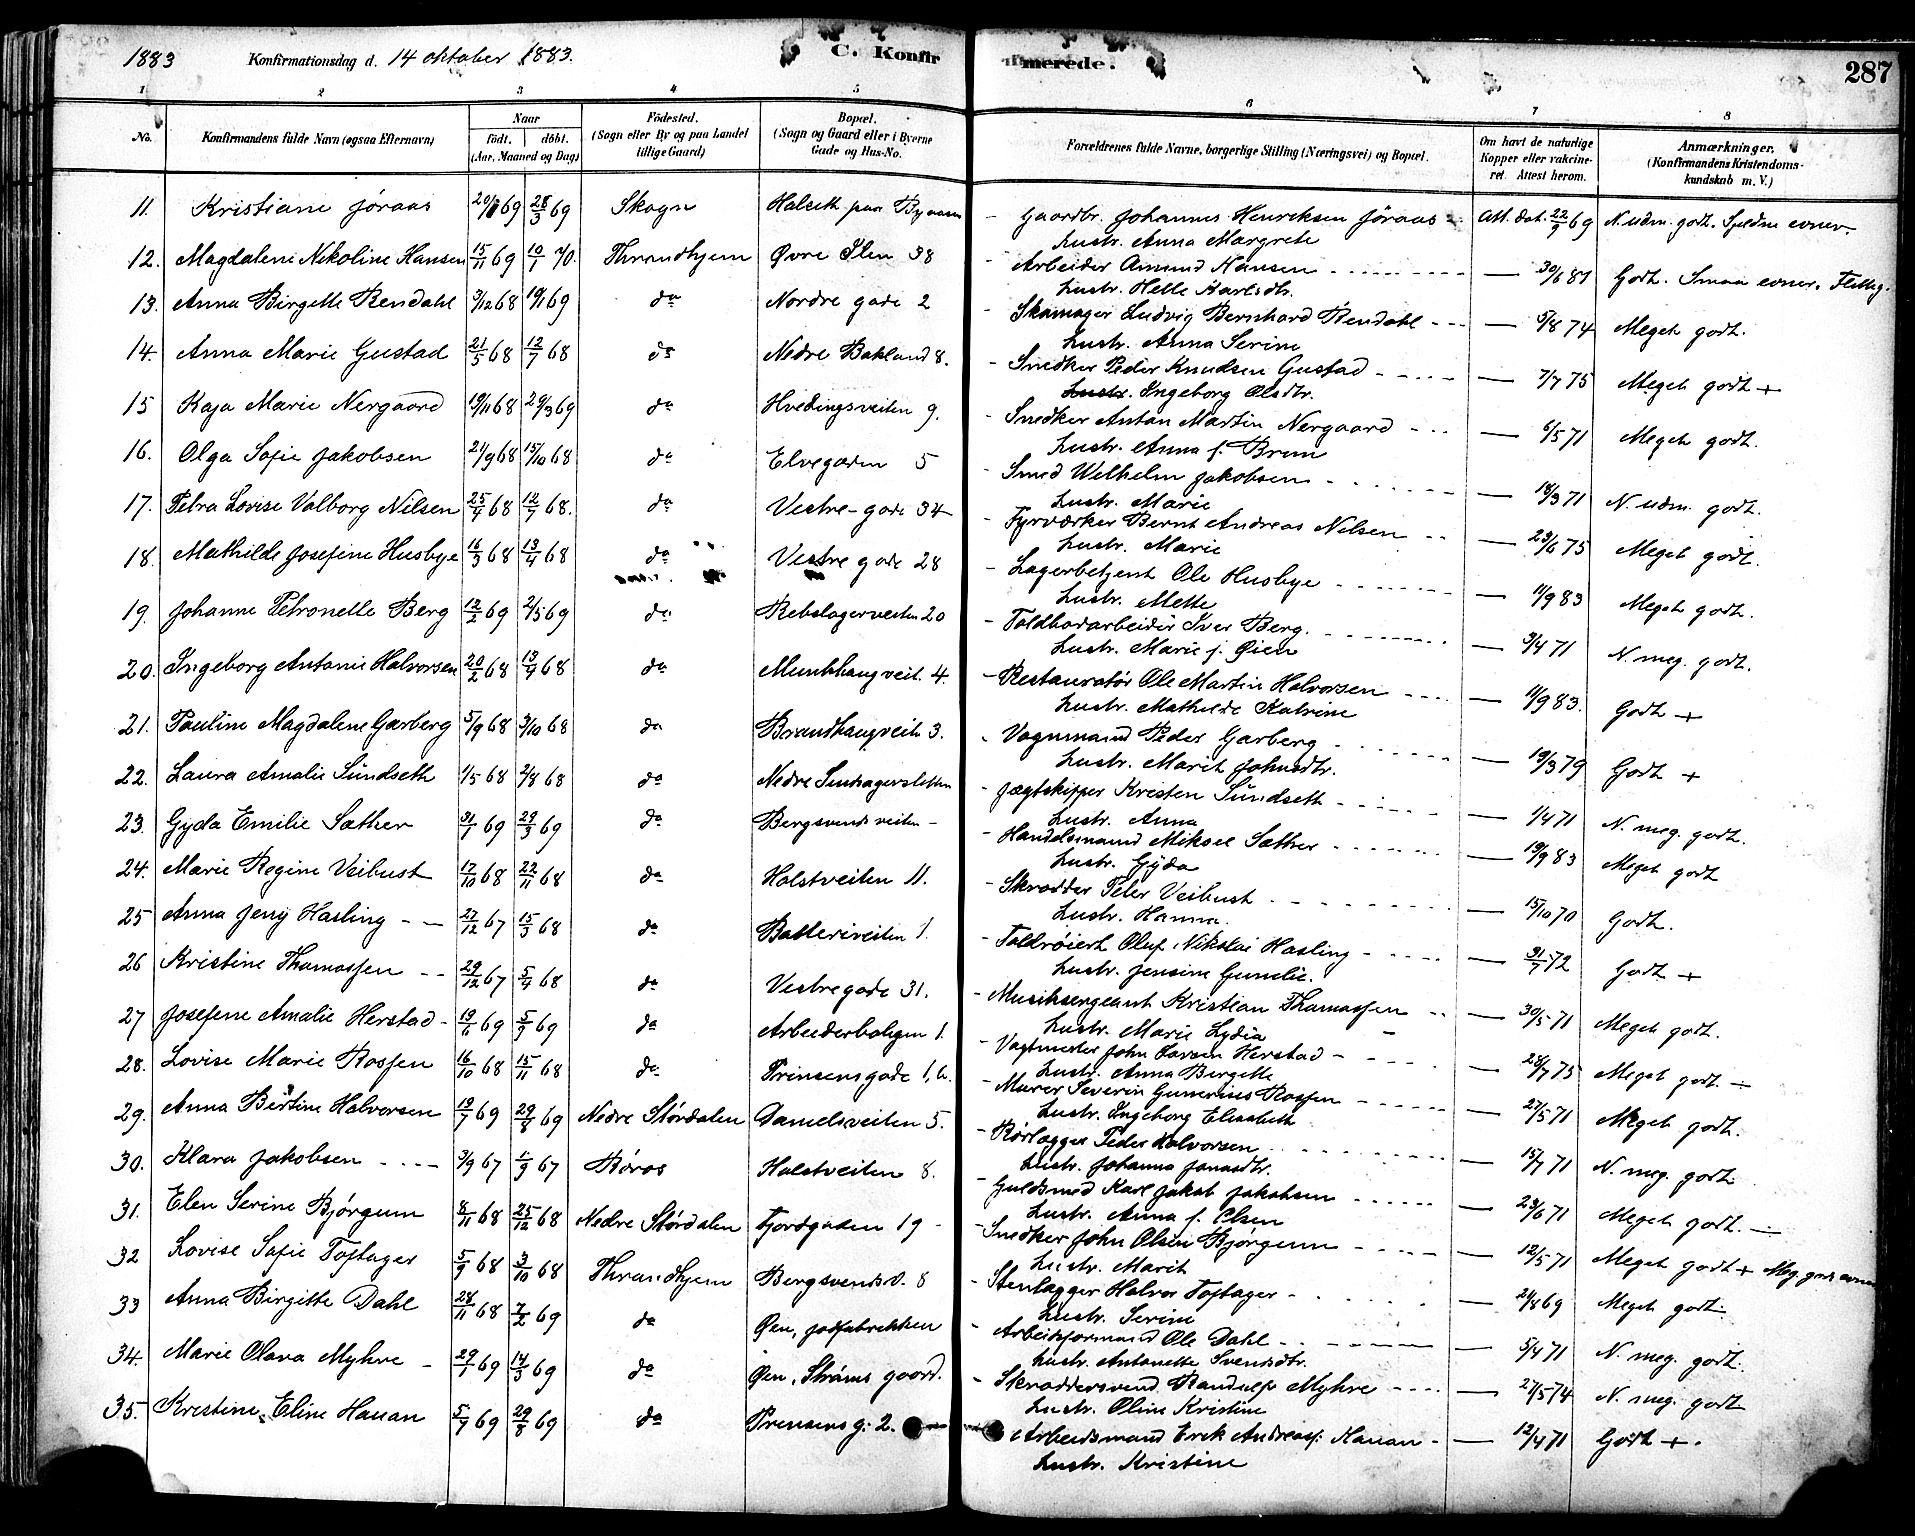 1883 Konfirmationsdag d. 14 oktober 1883. C. Konfirmerede. 287
1 2 3 4 5 6 7 8
No. Konfirmandens fulde Navn (ogsaa Efternavn) Naar födt. döbt. (Aar, Maaned og Dag) Födested. (Sogn eller By og paa Landet tillige Gaard) Bopæl. (Sogn og Gaard eller i Byerne Gade og Hus-No. Forældrenes fulde Navne, borgerlige Stilling (Næringsvei) og Bopæl. Om havt de naturlige Kopper eller vakcineret. Attest herom. Anmærkninger. (Konfirmandens Kristendomskundskab m. V.)
11. Kristiane Jøraas 69 28/3 69 Skogn Halseth paa Byaasen Gaardbr. Johannes Henriksen Jøraas Att. dat. 22/9 69 N. udm. godt. evner.
Hustr. Anna Margrete
12. Magdalene Nikoline Hansen 15/11 69 10/1 70. Throndhjem Øvre Ilen 38 Arbeider Amund Hansen 30/6 81 Godt. Smaa evner. Flittig.
Hustr. Helle Karlsdtr.
13. Anna Birgitte Rendahl 3/12 68 10/1 69 do Nordre gade 2 Skomager Ludvig Bernhard Rendahl 5/8 74 Meget godt.
Hustr. Anna Serine
14. Anna Marie Gustad 21/5 68 12/7 68 do Nedre Bakland 8. Snedker Peder Knudsen Gustad 7/7 75 Meget godt +
Hustr. Ingeborg Olsdtr.
15 Kaja Marie Nergaard 19/11 68 29/3 69 do Hvedingsveiten 9. Snedker Anton Martin Nergaard 6/5 71 Meget godt.
Hustr. Anna f. Brun
16. Olga Sofie Jakobsen 21/9 68 15/10 68 do Elvegaden 5 Smed Wilhelm Jakobsen 18/3 71 N. udm. godt.
Hustr. Marie
17. Petra Lovise Valborg Nilsen 25/4 68 12/7 68. do Vestre-gade 34 Fyrværker Bernt Andreas Nilsen 23/6 75 Meget godt.
Hustr. Marie
18. Mathilde Josefine Husbye 16/3 68 13/4 68 do Vestre gade 28 Lagerbetjent Ole Husbye 11/9 83 Meget godt.
Hustr. Mette
19. Johanne Petronelle Berg 12/2 69 2/5 69 do Rebslagerveiten 20 Toldbodarbeider Iver Berg. 3/4 71 N. meg. godt.
Hustr. Marie f. Øien
20. Ingeborg Antonie Halvorsen 20/2 68 13/4 68 do Munkhaugveit. 4. Restauratør Ole Martin Halvorsen 11/9 83. Godt +
Hustr. Mathilde Katrine
21. Pauline Magdalene Garberg 5/9 68 3/10 68 do Brandhaugveit. 3. Vognmand Peder Garberg 19/3 79 Godt +
Hustr. Marit Johnsdtr.
22. Laura Amalie Sundseth 1/5 68 2/8 68 do Nedre Jægtskipper Kristen Sundseth 1/4 71 N. meg. godt.
Hustr. Anna
23. Gyda Emilie Sæther 31/1 69 29/3 69 do Bergsvendsveiten Handelsmand Mikael Sæther 19/9 83 Meget godt
Hustr. Gyda
24. Marie Regine Veibust 17/10 68 22/11 68 do Holstveiten 11. Skrædder Peter Veibust 15/10 70 Godt.
Hustr. Hanna.
25 Anna Jeny Hasling 27/12 67 15/3 68 do Batteriveiten 1. Toldrøiert Oluf Nikolai Hasling 31/7 72 Godt +
Hustr. Jensine Gunelie.
26 Kristine Thomassen 29/12 67 5/4 68 do Vestregade 31. Musiksergeant Kristian Thomassen 30/5 71 Meget godt.
Hustr. Marie Lydia
27 Josefine Amalie Herstad 19/6 69 5/9 69 do Arbeiderboligen 1. Vagtmester John Larsen Herstad 28/7 75 Meget godt
Hustr. Anna Bergitte
28. Lovise Marie Rossen 16/10 68 15/11 68 do Prinsensgade 1, b. Murer Severin Gunerius Rossen 27/5 71 Meget godt.
Hustr. Ingeborg Elisabeth
29. Anna Bertine Halvorsen 19/7 69 29/8 69 Nedre Størdalen Danielsveiten 5. Rørlægger Peder Halvorsen 15/7 71 N. meg. godt
Hustr. Johanna Jonasdtr.
30. Klara Jakobsen 3/9 67 1/9 67 Røros Holstveiten 8. Guldsmed Karl Jakob Jakobsen 23/6 71 Meget godt.
Hustr. Anna f. Olsen
31. Elen Serine Bjørgum 8/11 68 25/12 68 Nedre Størdalen Fjordgaden 19 Snedker John Olsen Bjørgum 12/5 71 Meget godt + Meg. gode evner
Hustr. Marit
32 Lovise Sofie Toftager 5/9 68 3/10 68 Throndhjem Bergsvendsv. 8 Stenlægger Halvor Toftager 24/8 69 Meget godt.
Hustr. Serine
33 Anna Birgitte Dahl 28/11 68 7/2 69 do Øen, jodfabrikken Arbeidsformand Ole Dahl 5/4 71 N. meg. godt.
Hustr. Antonette Svendsdtr.
34. Marie Olava Myhre 29/1 69 14/3 69 do Øen, Strøms gaard. Skræddersvend Randulf Myhre 27/5 74 N. meg. godt
Hustr. Oline Kristine
35. Kristine Eline Hanan 5/7 69 29/8 69 do Prinsens g. 2. Arbeidsmand Erik Andreas Hanan 12/4 71 Godt +.
Hustr. Kristine